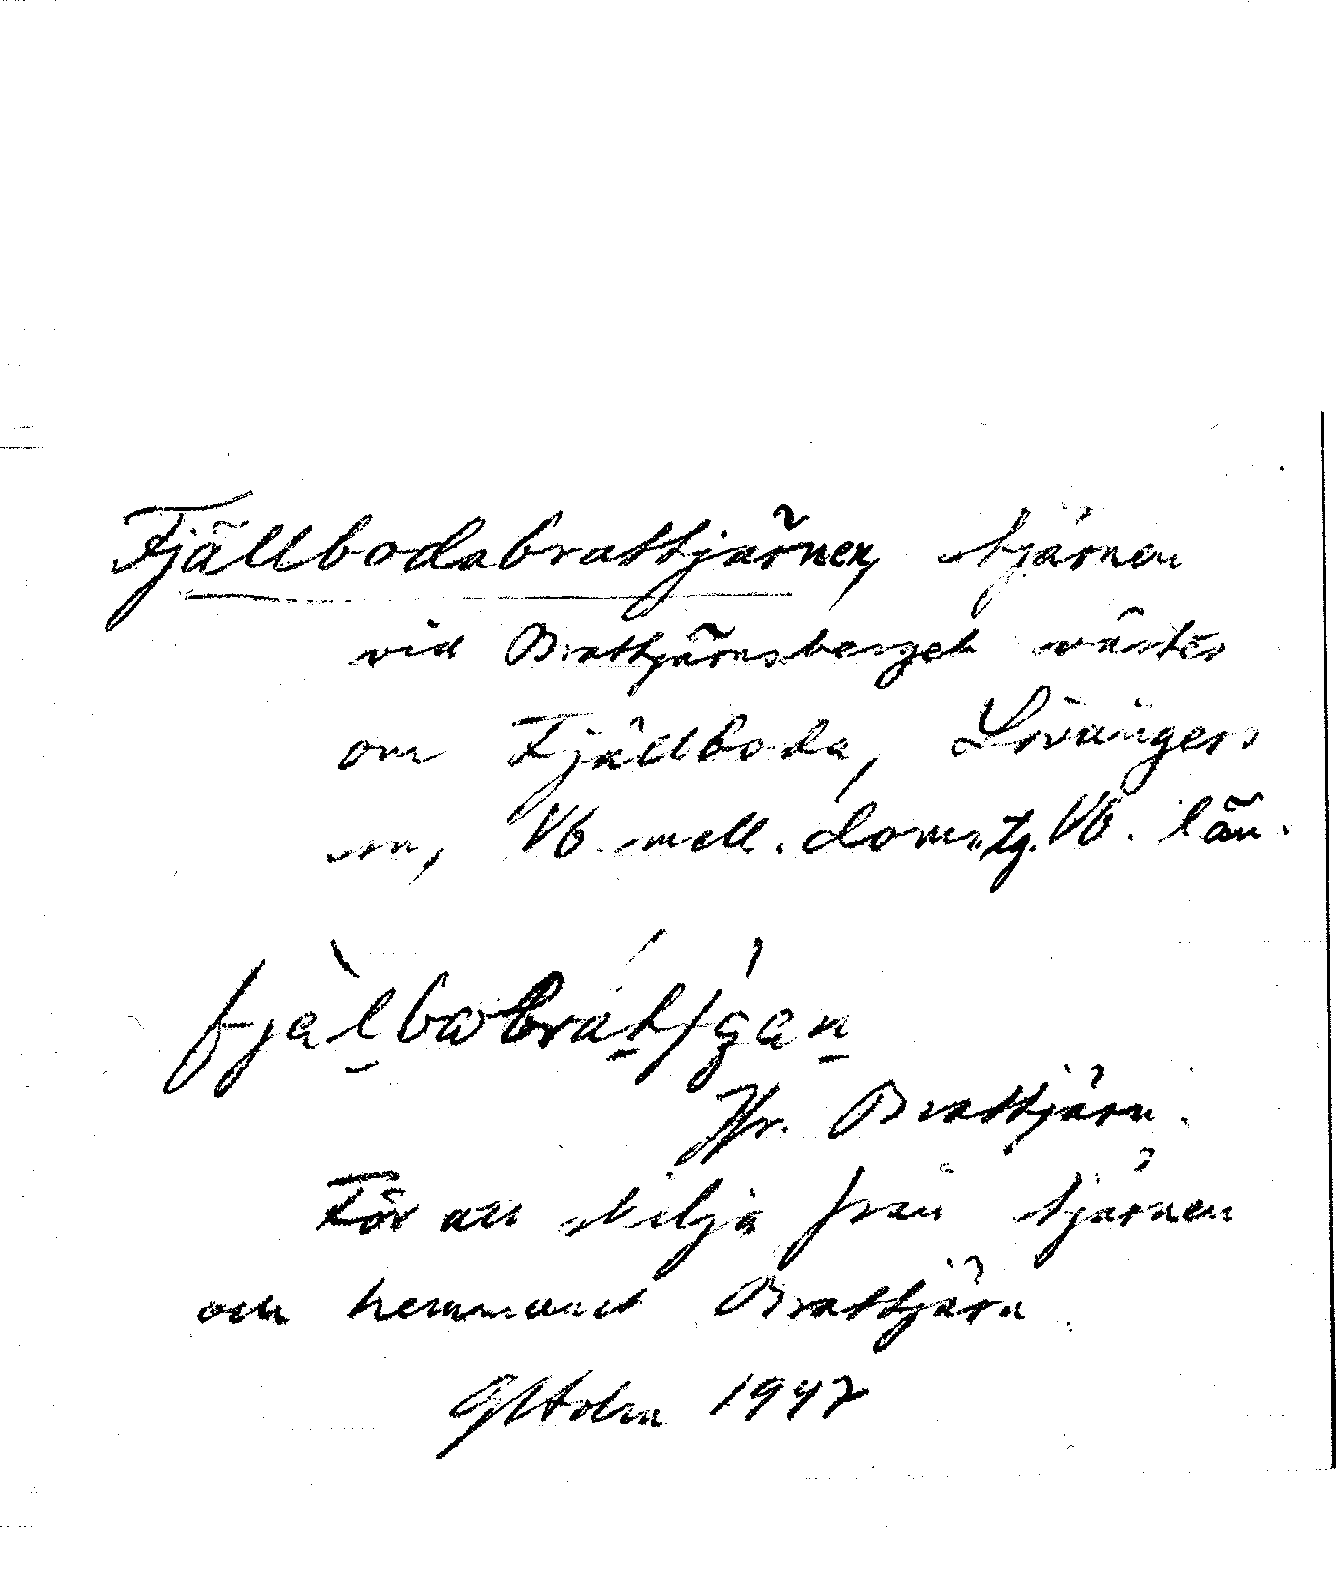 Fjällbodabrattjärnen, tjärnen
vid Brattjärnsberget väster
om Fjällboda, Lövångers
sn, Vb. mell. doms.tg. Vb. län.
Hr. Brattjärn.
För att skilja från tjärnen
och hemmanet Brattjärn.
G Holm 1947